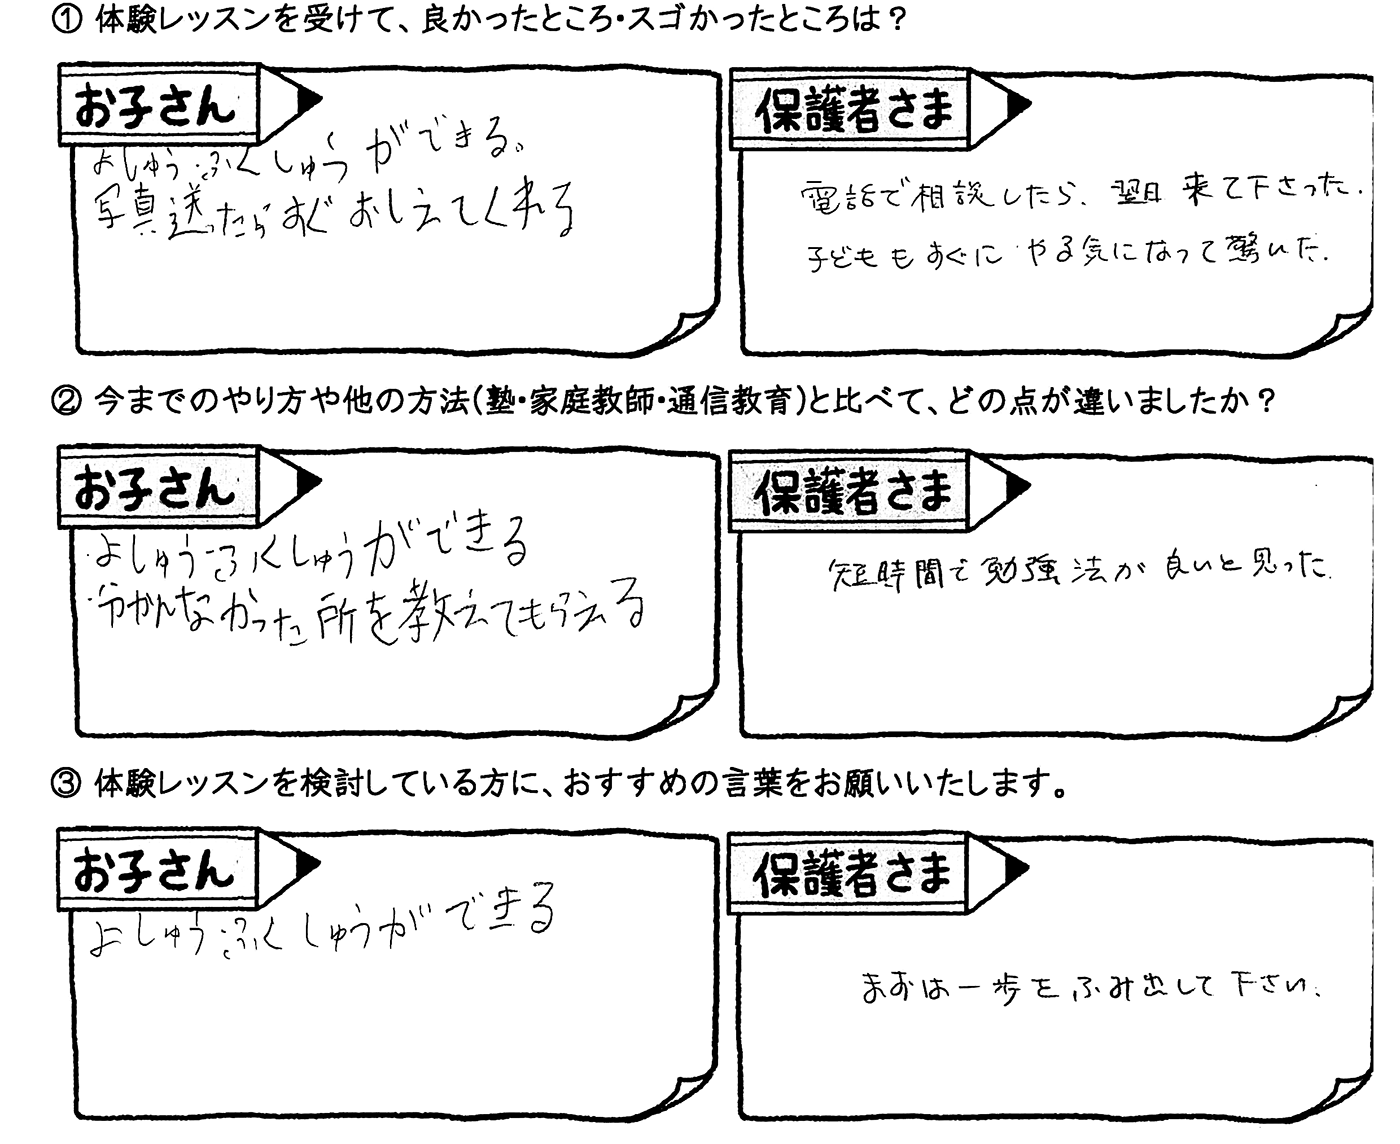 ① 体験レッスンを受けて、良かったところ・スゴかったところは？
お子さん
よしゅう・ふくしゅうができる。
写真送ったらすぐおしえてくれる
保護者さま
電話で相談したら、翌日来て下さった.
子どももすぐにやる気になって驚いた.
② 今までのやり方や他の方法(塾・家庭教師・通信教育)と比べて、どの点が違いましたか？
お子さん
よしゅう・ふくしゅうができる
分かんなかった所を教えてもらえる
保護者さま
短時間で勉強法が良いと思った.
③ 体験レッスンを検討している方に、おすすめの言葉をお願いいたします。
お子さん
よしゅう・ふくしゅうができる
保護者さま
まずは一歩をふみ出して下さい.